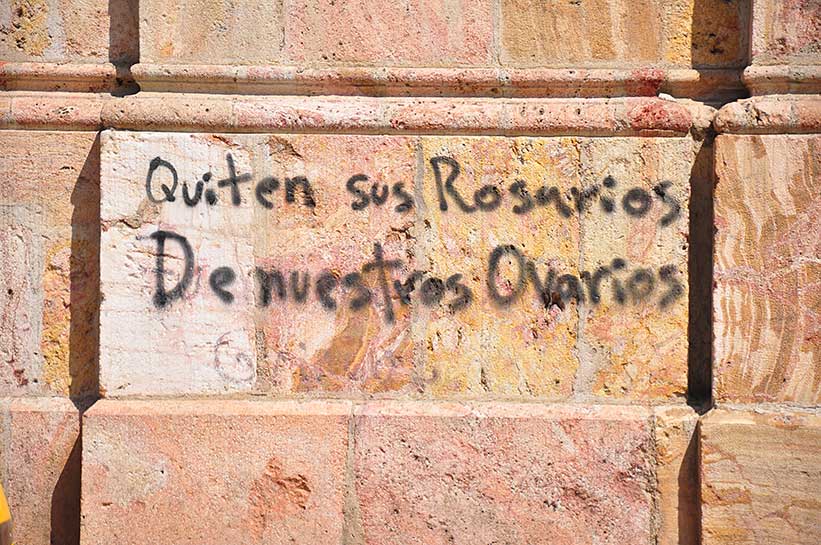 Quiten sus Rosarios
De nuestros Ovarios